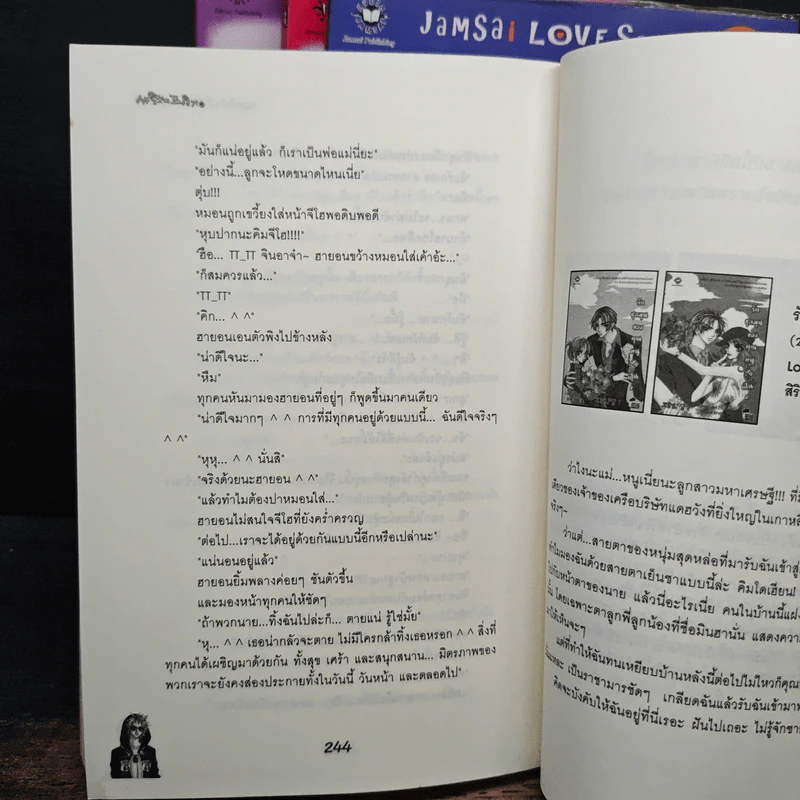 Jamsai Publishing
JAMSAI LOVE S
"มันก็แน่อยู่แล้ว ก็เราเป็นพ่อแม่นี่ยะ"
"อย่างนี้...ลูกจะโหดขนาดไหนเนี่ย"
ตุ่บ!!!
หมอนถูกเขวี้ยงใส่หน้าจีโฮพอดิบพอดี
"หุบปากนะคิมจีโฮ!!!!"
"ฮือ... TT_TT จินอาจ๋า~ ฮายอนขว้างหมอนใส่เค้าอ้ะ..."
"ก็สมควรแล้ว..."
"TT_TT"
"คิก... ^ ^"
ฮายอนเอนตัวพิงไปข้างหลัง
"น่าดีใจนะ..."
"หืม"
ทุกคนหันมามองฮายอนที่อยู่ๆ ก็พูดขึ้นมาคนเดียว
"น่าดีใจมากๆ ^ ^ การที่มีทุกคนอยู่ด้วยแบบนี้... ฉันดีใจจริงๆ
^ ^"
"หุหุ... ^ ^ นั่นสิ"
"จริงด้วยนะฮายอน ^ ^"
"แล้วทำไมต้องปาหมอนใส่..."
ฮายอนไม่สนใจจีโฮที่ยังคร่ำครวญ
"ต่อไป...เราจะได้อยู่ด้วยกันแบบนี้อีกหรือเปล่านะ"
"แน่นอนอยู่แล้ว"
ฮายอนยิ้มพลางค่อยๆ ชันตัวขึ้น
และมองหน้าทุกคนให้ชัดๆ
"ถ้าพวกนาย...ทิ้งฉันไปล่ะก็... ตายแน่ รู้ใช่มั้ย"
"หุ... ^ ^ เธอน่ากลัวจะตาย ไม่มีใครกล้าทิ้งเธอหรอก ^ ^ สิ่งที่
ทุกคนได้เผชิญมาด้วยกัน ทั้งสุข เศร้า และสนุกสนาน... มิตรภาพของ
พวกเราจะยังคงส่องประกายทั้งในวันนี้ วันหน้า และตลอดไป"
244
(2
Lo
สิริ
ว่าไงนะแม่...หนูเนี่ยนะลูกสาวมหาเศรษฐี!!! ที่มี
เดียวของเจ้าของเครือบริษัทแดฮวังที่ยิ่งใหญ่ในเกาหลี
จริงๆ~
ว่าแต่...สายตาของหนุ่มสุดหล่อที่มารับฉันเข้าสู่
ทำไมมองฉันด้วยสายตาเย็นชาแบบนี้ล่ะ คิมโดเฮียน!
ไปกับหน้าตาของนาย แล้วนี่อะไรเนี่ย คนในบ้านนี้แฝง
นั้น โดยเฉพาะตาลูกพี่ลูกน้องที่ชื่อมินฮานั่น แสดงควา
มาให้เห็นจะๆ
แต่ที่ทำให้ฉันทนเหยียบบ้านหลังนี้ต่อไปไม่ไหวก็คุณ
เป็นราชามารชัดๆ เกลียดฉันแล้วรับฉันเข้ามาท
คิดจะบังคับให้ฉันอยู่ที่นี่เรอะ ฝันไปเถอะ ไม่รู้จักซา